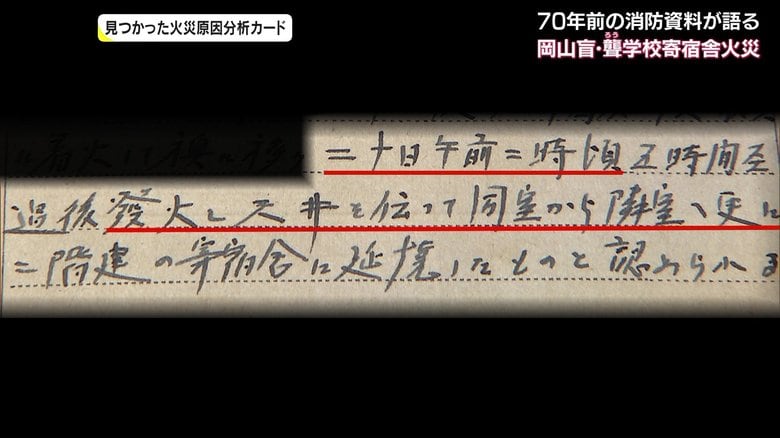 見つかった火災原因分析カード
70年前の消防資料が語る
ろう
岡山盲・聾学校寄宿舎火災
二十日午前二時頃五時間至
過後發火し天井を伝つて同室から隣室へ更に
二階建の寄宿舎に延焼したものと認められる